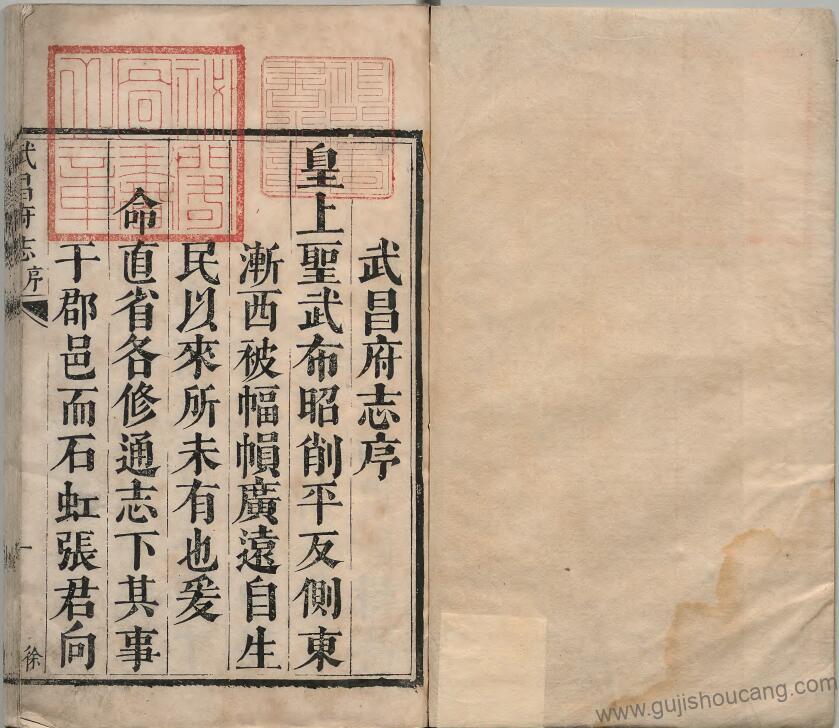 武昌府志序
皇上聖武布昭削平反側東
漸西被幅幀廣遠自生
民以來所未有也爰
命直省各修通志下其事
于郡邑而石虹張君向
武昌府志
序
一
徐
www.gujishoucang.com